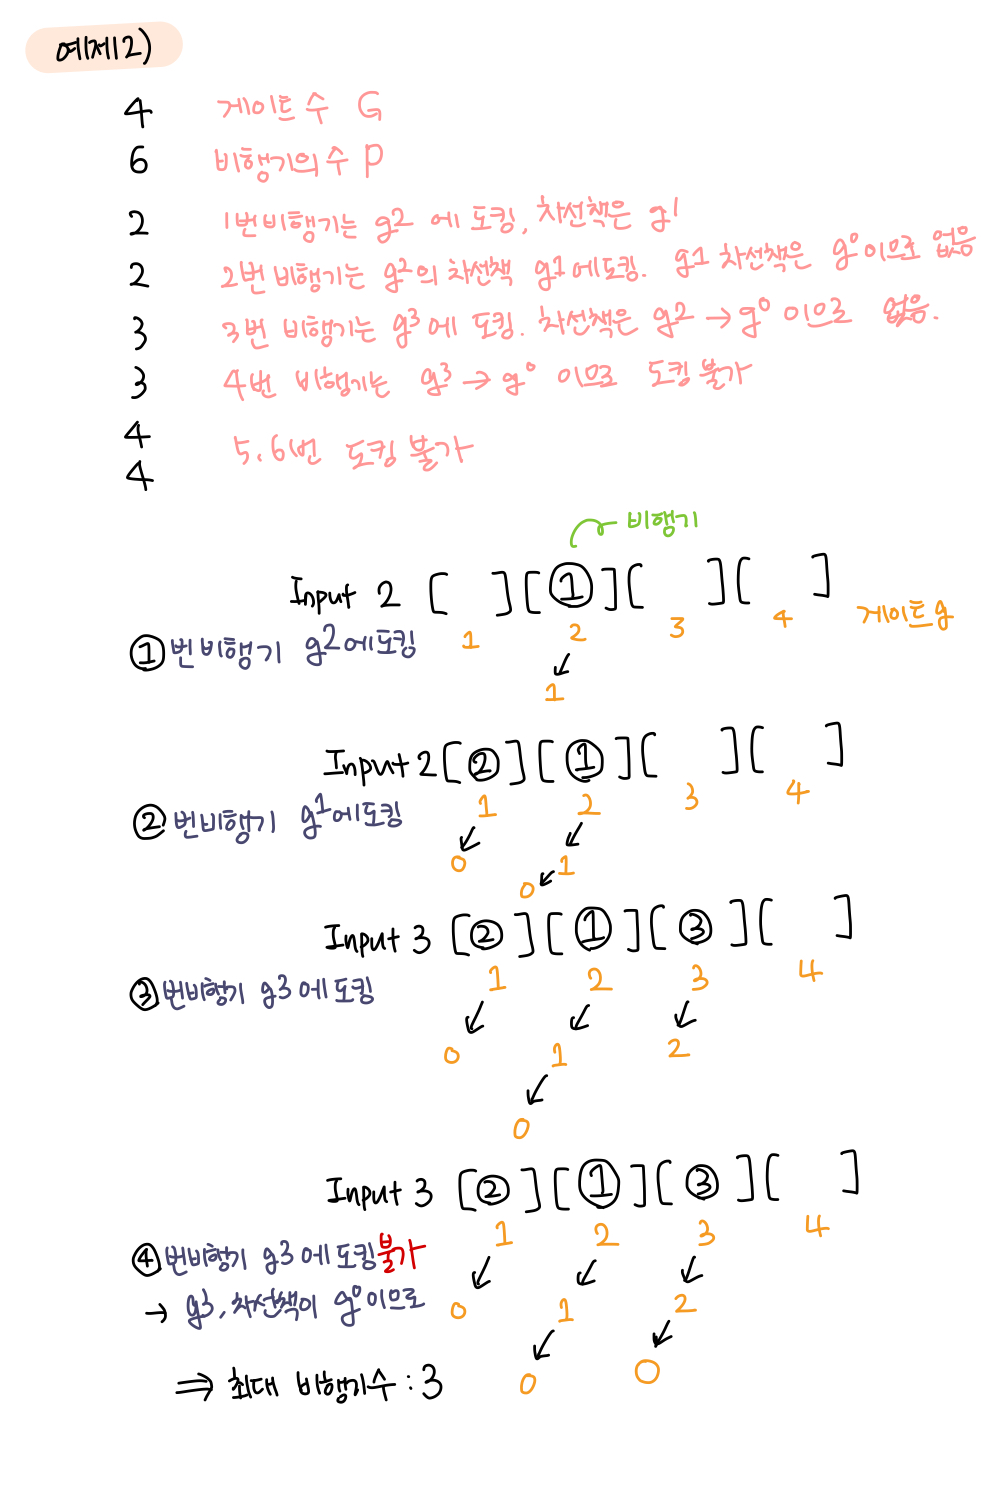 예제2)
4 게이트 수 G
6 비행기의 수 P
2 1번 비행기는 g2 에 도킹, 차선책은 g1
2 2번 비행기는 g2의 차선책 g1에 도킹. g1 차선책은 g0이므로 없음
3 3번 비행기는 g3에 도킹. 차선책은 g2 → g0 이므로 없음.
3 4번 비행기는 g3 → g0 이므로 도킹 불가
4 5, 6번 도킹 불가
4
비행기
Input 2 [ ] [ ① ] [ ] [ ]
1 2 3 4 게이트 g
① 번 비행기 g2에 도킹
↙
1
Input 2 [ ② ] [ ① ] [ ] [ ]
1 2 3 4
② 번 비행기 g1에 도킹
↙ ↙
0 1
0 ↙
Input 3 [ ② ] [ ① ] [ ③ ] [ ]
1 2 3 4
③ 번 비행기 g3에 도킹
↙ ↙ ↙
0 1 2
↙
0
Input 3 [ ② ] [ ① ] [ ③ ] [ ]
1 2 3 4
④ 번 비행기 g3에 도킹 불가
↙ ↙ ↙
→ g3, 차선책이 g0이므로
0 1 2
↙ ↙
⇒ 최대 비행기 수 : 3
0 0